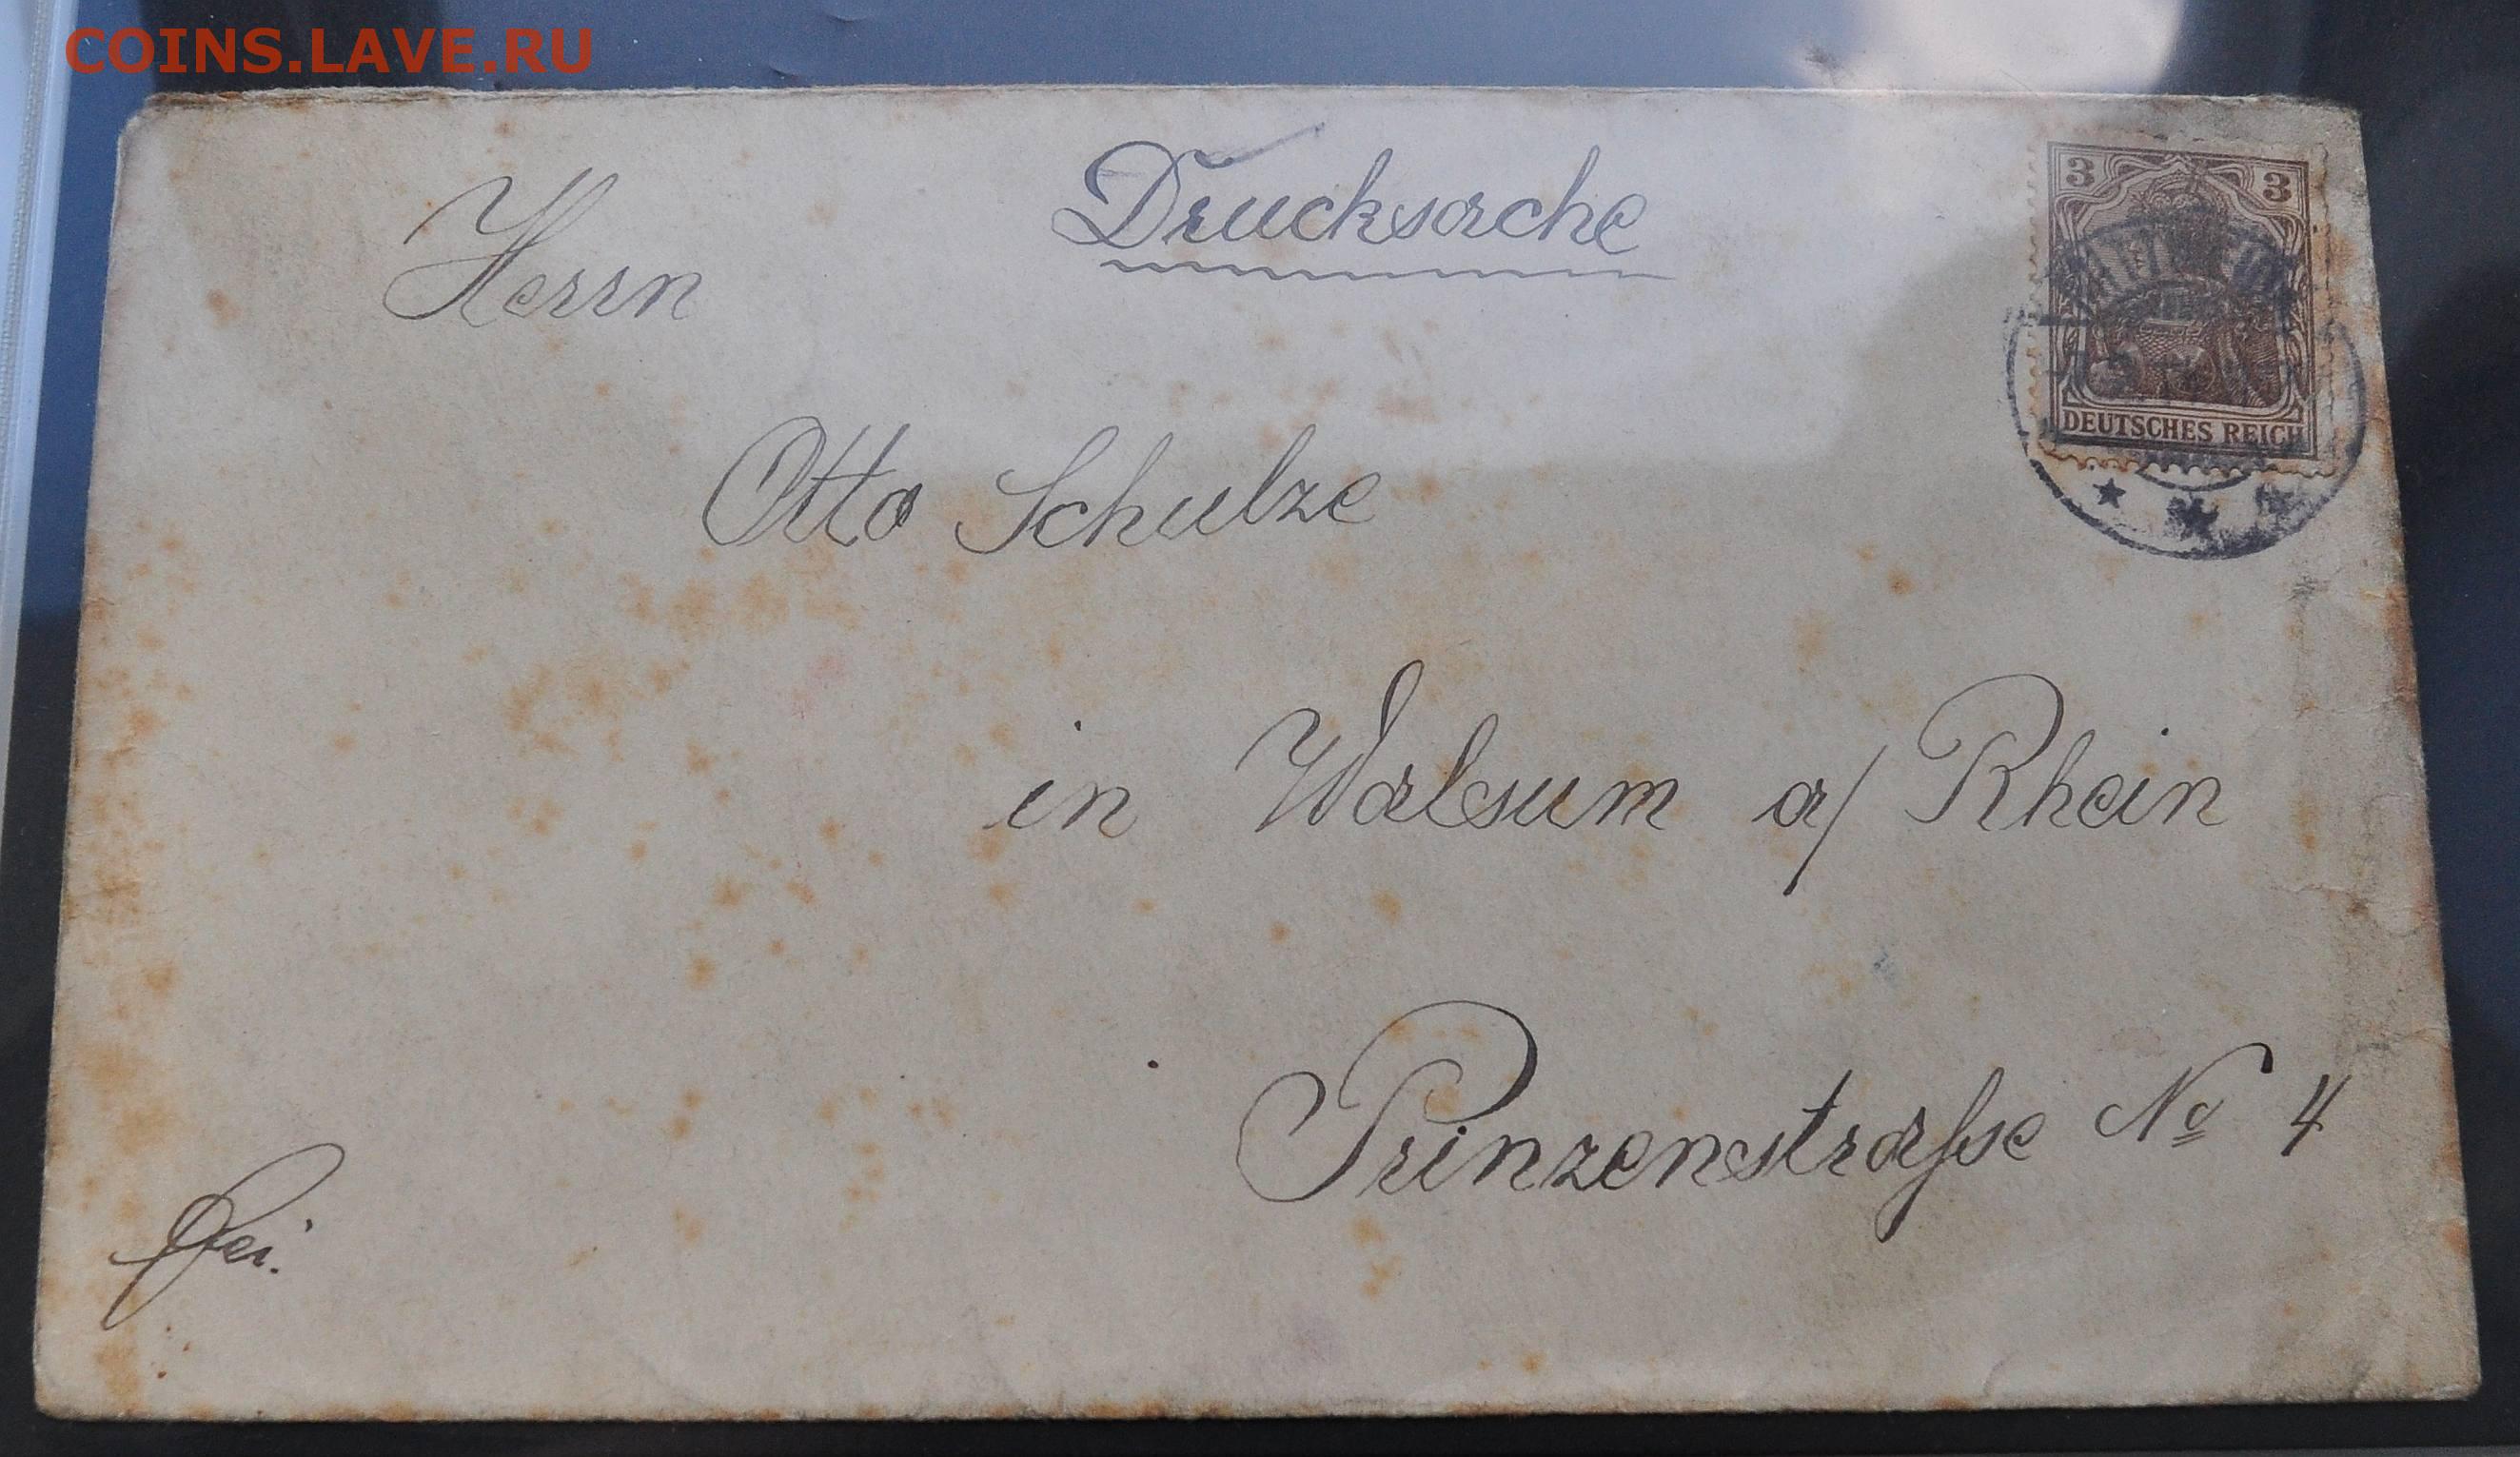 COINS.LAVE.RU
Drucksache
3 3
DEUTSCHES REICH
Herrn
Otto Schulze
in Walsum a/ Rhein
Prinzenstraße No 4